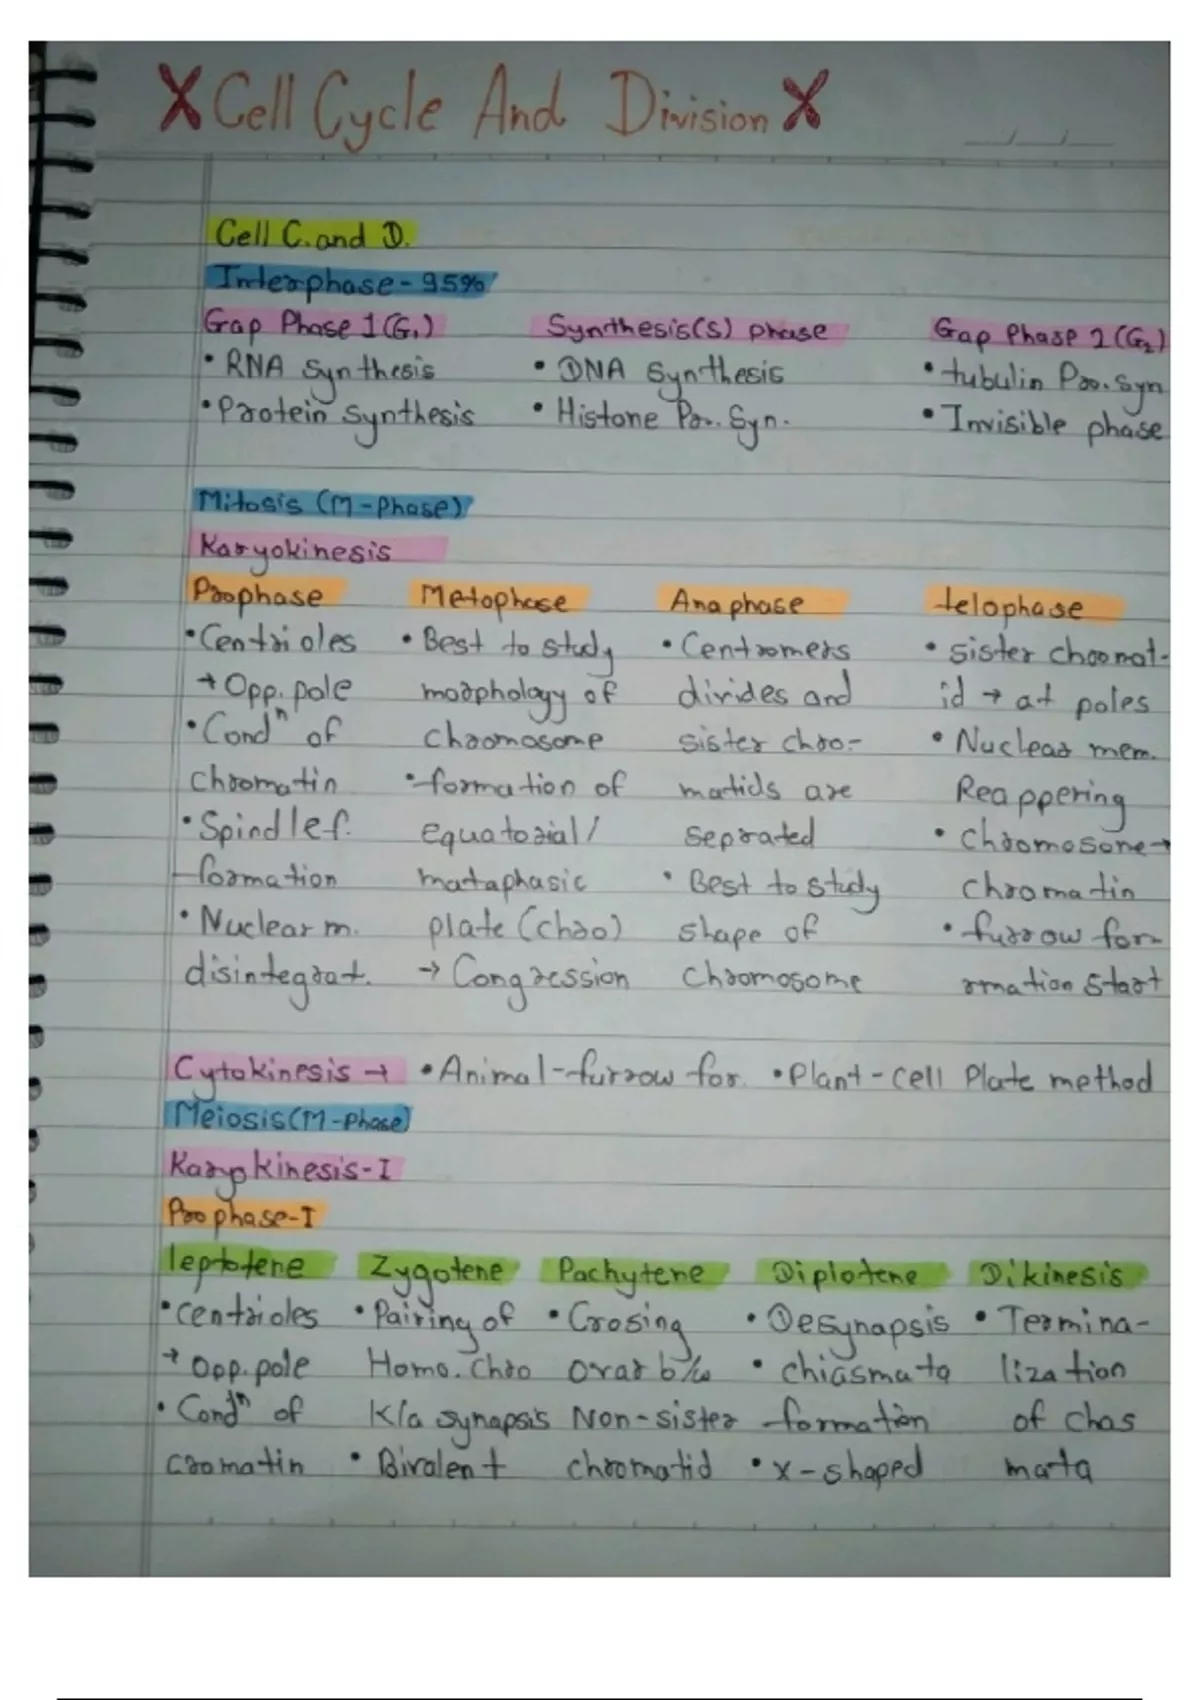 X Cell Cycle And Division X
Cell C. and D.
Interphase - 95%
Gap Phase 1 (G₁) Synthesis(s) phase Gap Phase 2 (G₂)
• RNA Synthesis • DNA Synthesis • tubulin Pro. Syn
• Protein Synthesis • Histone Pr. Syn. • Invisible phase
Mitosis (M-Phase)
Karyokinesis
Prophase Metophase Anaphase telophase
• Centrioles • Best to study • Centromers • sister chromat-
→ Opp. pole morphology of divides and id → at poles
• Condⁿ of chromosome sister chro- • Nuclear mem.
chromatin • formation of matids are Reappering
• Spindle f. equatorial/ seprated • chromosome →
formation mataphasic • Best to study chromatin
• Nuclear m. plate (chro) shape of • furrow for-
disintegrat. → Congression Chromosome rmation start
Cytokinesis → • Animal - furrow for. • Plant - cell Plate method
Meiosis (M-Phase)
Karyokinesis-I
Prophase-I
leptotene Zygotene Pachytene Diplotene Dikinesis
• centrioles • Pairing of • Crosing • Desynapsis • Termina-
→ opp. pole Homo. Chro ovar b/w • chiasmata lization
• Condⁿ of K/a synapsis Non-sister formation of chas
cromatin • Bivalent chromatid • x-shaped mata